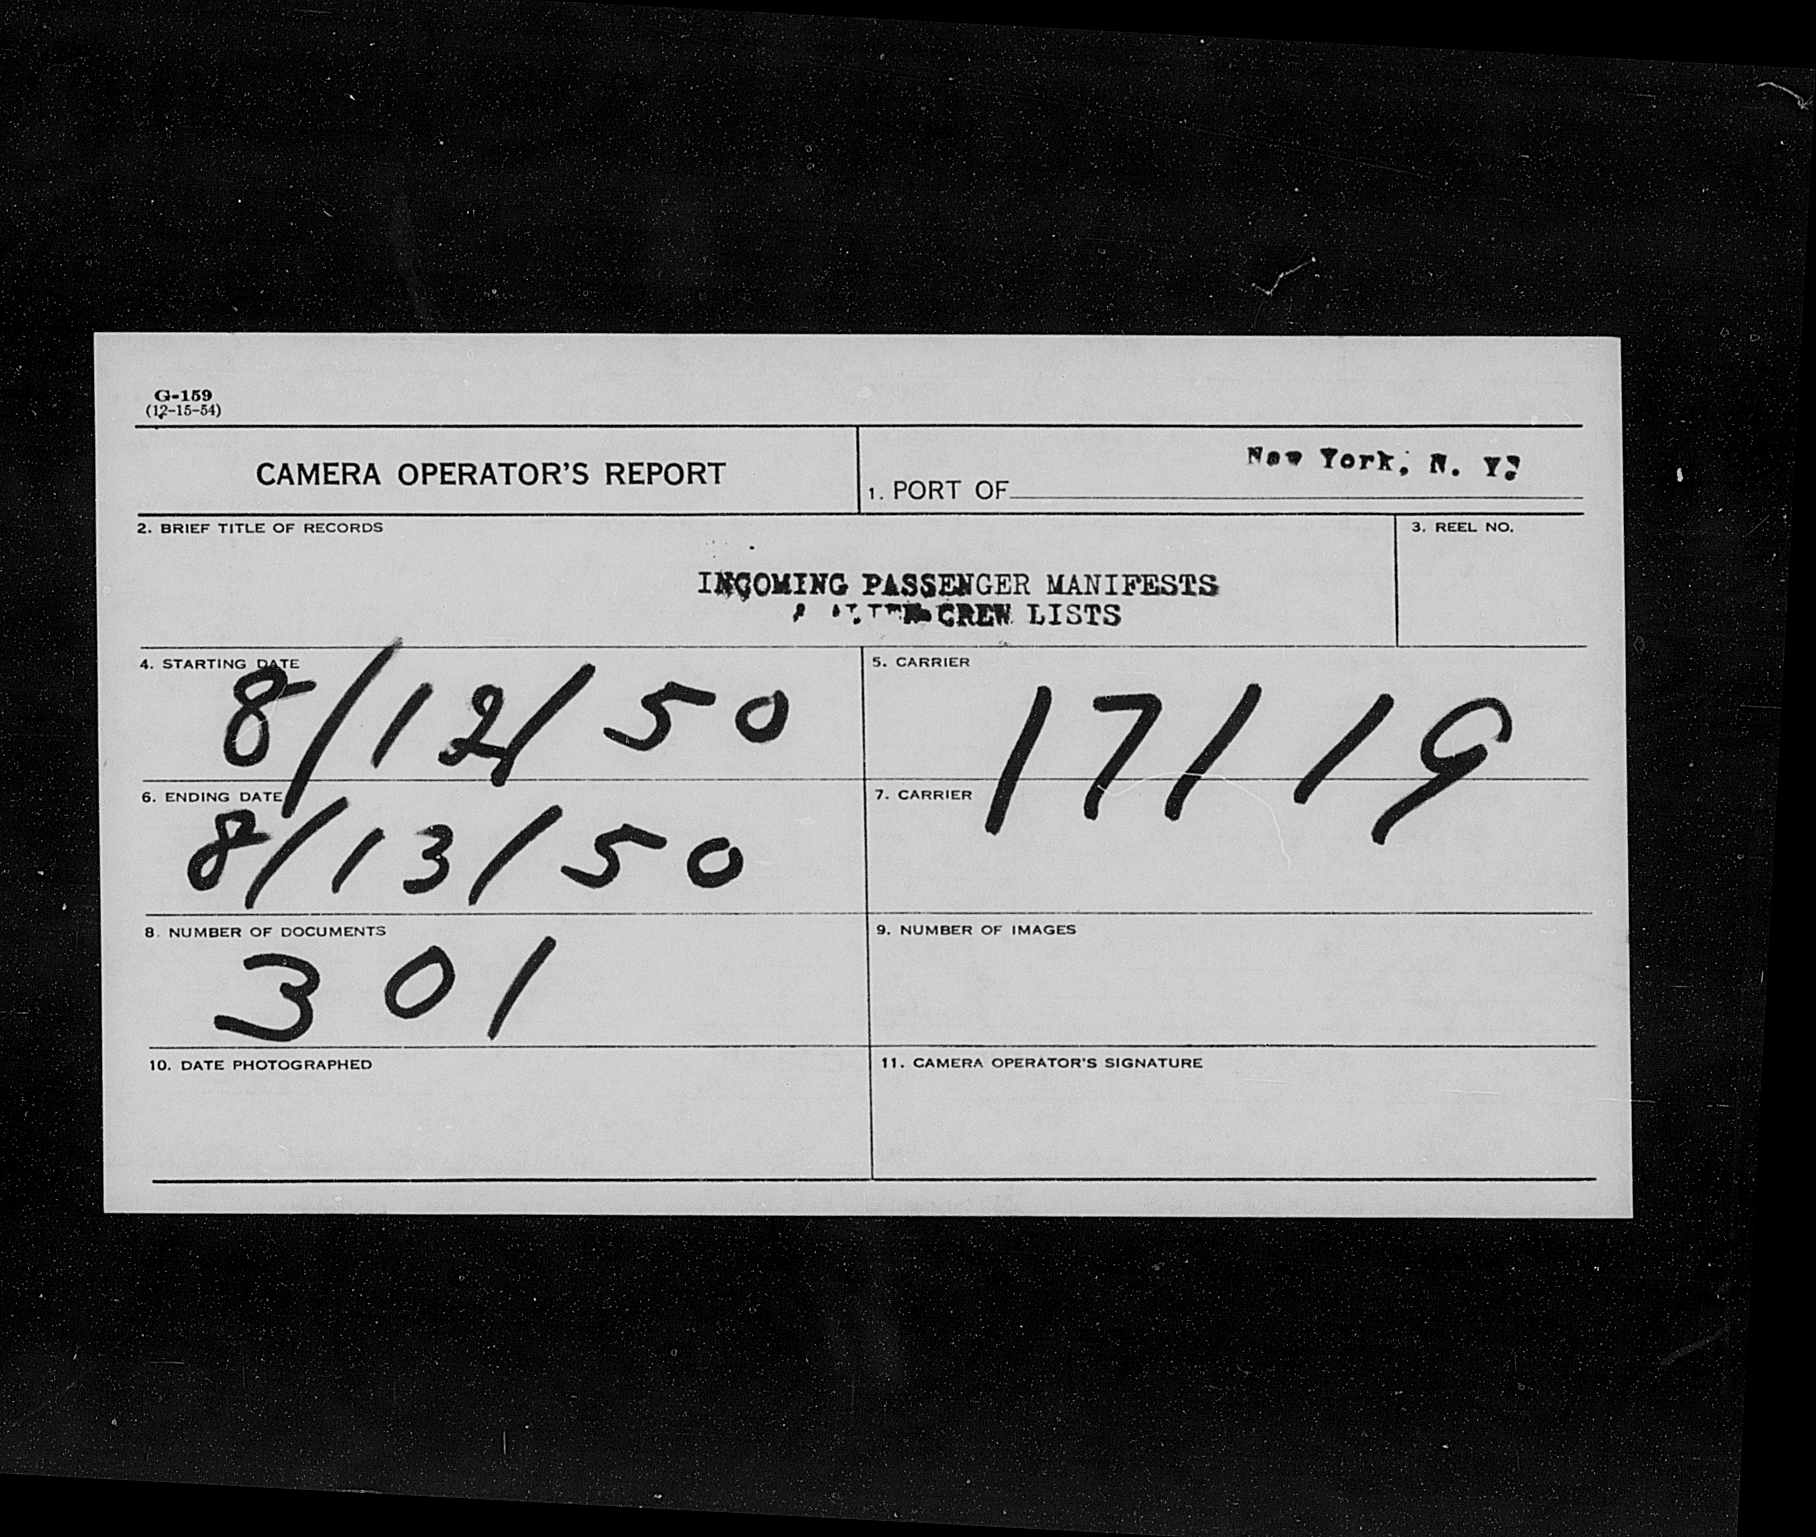 G-159
(12-15-54)
CAMERA OPERATOR'S REPORT
1. PORT OF New York, N. Y.
2. BRIEF TITLE OF RECORDS
3. REEL NO.
INCOMING PASSENGER MANIFESTS
CREW LISTS
4. STARTING DATE
8/12/50
5. CARRIER
17119
6. ENDING DATE
8/13/50
7. CARRIER
8. NUMBER OF DOCUMENTS
301
9. NUMBER OF IMAGES
10. DATE PHOTOGRAPHED
11. CAMERA OPERATOR'S SIGNATURE